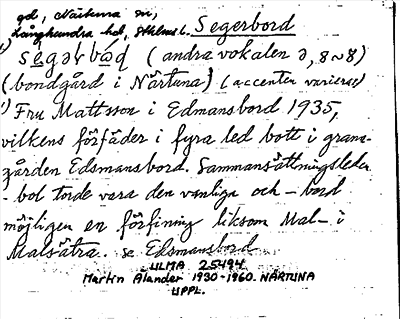 gd, Närtuna sn,
Långhundra hd, Sthlms l. Segerbord
1) segərbɷd (andra vokalen ə, 8~8)
(bondgård i Närtuna) (accenten varierar)
1) Fru Mattsson i Edmansbord 1935,
vilkens förfäder i fyra led bott i grann-
gården Edsmansbord. Sammansättningsleden
-bol torde vara den vanliga och -bord
möjligen en förfining liksom Mal- i
Malsätra. se Edsmansbord
ULMA 25494
Martin Ålander 1930-1960. NÄRTUNA
UPPL.